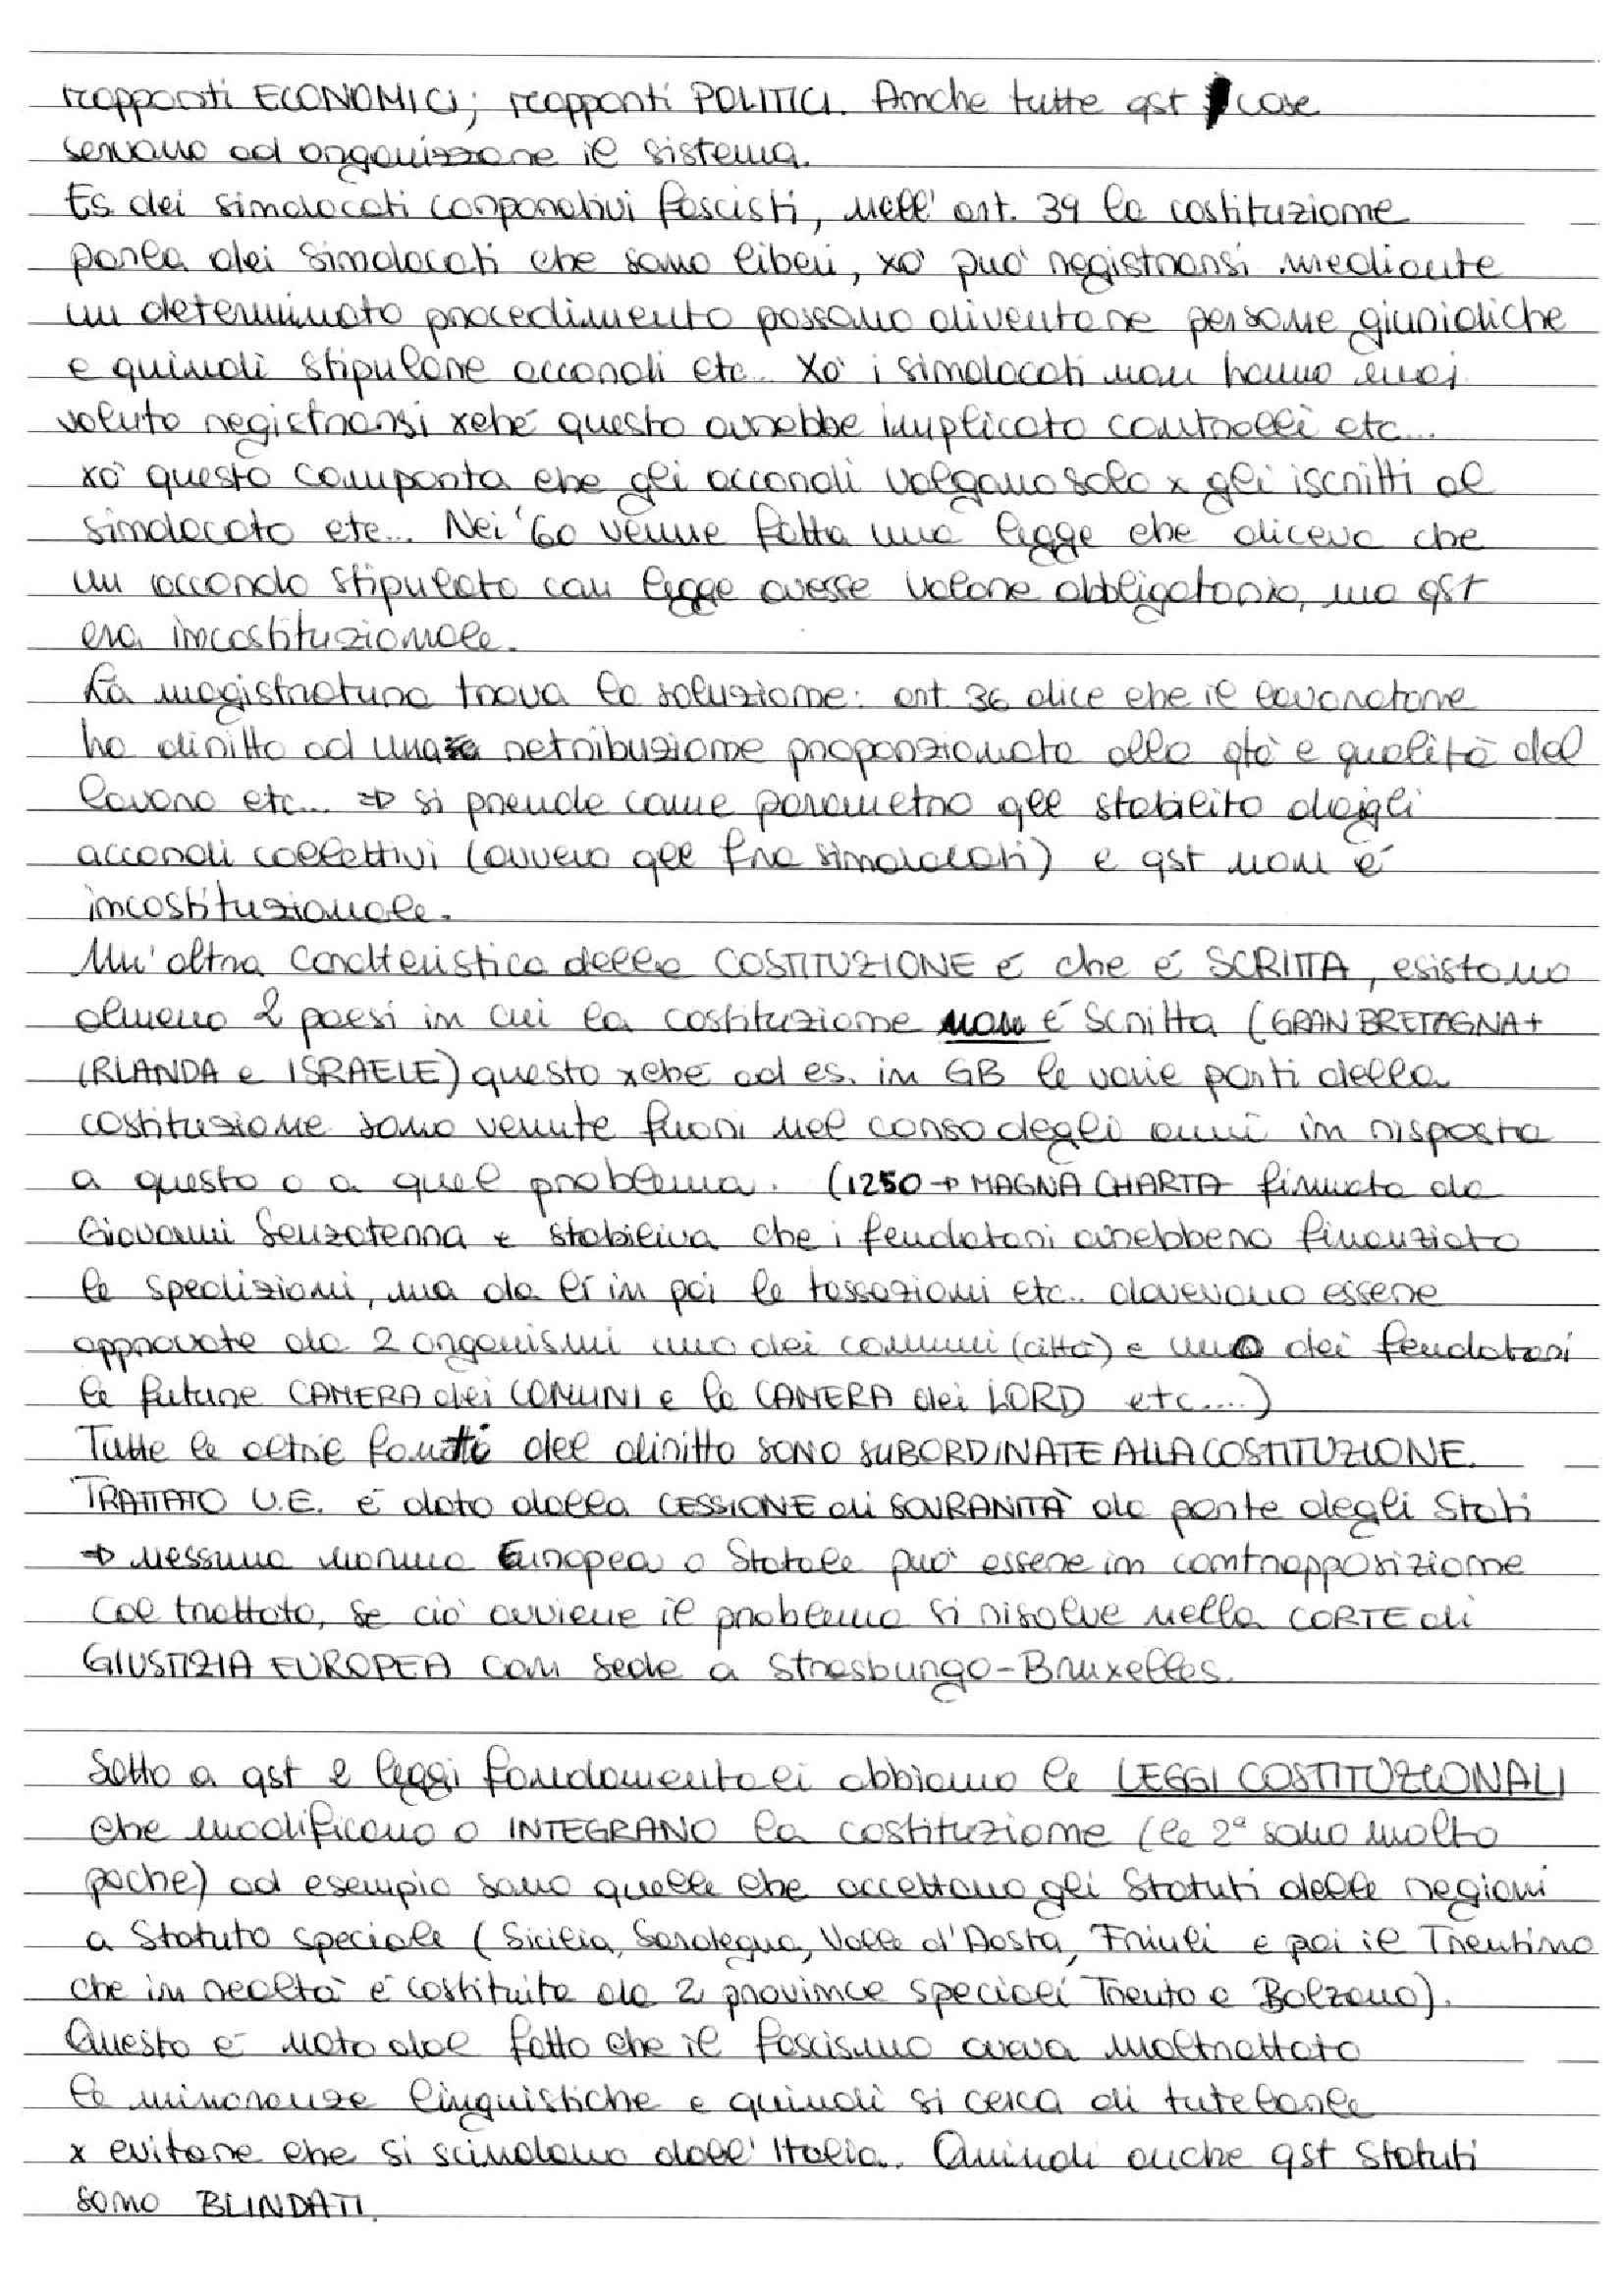 rapporti ECONOMICI; rapporti POLITICI. Anche tutte qst cose
servono ad organizzare il sistema.
Es dei sindacati corporativi fascisti, nell' art. 39 la costituzione
parla dei sindacati che sono liberi, xò può registrarsi mediante
un determinato procedimento possono diventare persone giuridiche
e quindi stipulare accordi etc... Xò i sindacati non hanno mai
voluto registrarsi xché questo avrebbe implicato controlli etc...
xò questo comporta che gli accordi valgano solo x gli iscritti al
sindacato etc... Nei '60 venne fatta una legge che diceva che
un accordo stipulato con legge avesse valore obbligatorio, ma qst
era incostituzionale.
La magistratura trova la soluzione: art. 36 dice che il lavoratore
ha diritto ad una retribuzione proporzionata alla qtà e qualità del
lavoro etc... => si prende come parametro qll stabilito dagli
accordi collettivi (ovvero qll fra sindacati) e qst non é
incostituzionale.
Un'altra caratteristica della COSTITUZIONE é che é SCRITTA, esistono
almeno 2 paesi in cui la costituzione non é scritta (GRAN BRETAGNA +
IRLANDA e ISRAELE) questo xché ad es. in GB le varie parti della
costituzione sono venute fuori nel corso degli anni in risposta
a questo o a quel problema. (1250 → MAGNA CHARTA firmata da
Giovanni Senzaterra e stabiliva che i feudatari avrebbero finanziato
le spedizioni, ma da lì in poi le tassazioni etc.. dovevano essere
approvate da 2 organismi uno dei comuni (città) e uno dei feudatari
le future CAMERA dei COMUNI e la CAMERA dei LORD etc....)
Tutte le altre fonti del diritto SONO SUBORDINATE ALLA COSTITUZIONE.
TRATTATO U.E. é dato dalla CESSIONE di SOVRANITÀ da parte degli Stati
=> nessuna norma Europea o Statale può essere in contrapposizione
col trattato, se ciò avviene il problema si risolve nella CORTE di
GIUSTIZIA EUROPEA con sede a Strasburgo-Bruxelles.
Sotto a qst 2 leggi fondamentali abbiamo le LEGGI COSTITUZIONALI
che modificano o INTEGRANO la costituzione (le 2ᵉ sono molto
poche) ad esempio sono quelle che accettano gli Statuti delle regioni
a Statuto speciale (Sicilia, Sardegna, Valle d'Aosta, Friuli e poi il Trentino
che in realtà é costituita da 2 province speciali Trento e Bolzano).
Questo é nato dal fatto che il fascismo aveva maltrattato
le minoranze linguistiche e quindi si cerca di tutelarle
x evitare che si scindano dall'Italia. Quindi anche qst Statuti
sono BLINDATI.